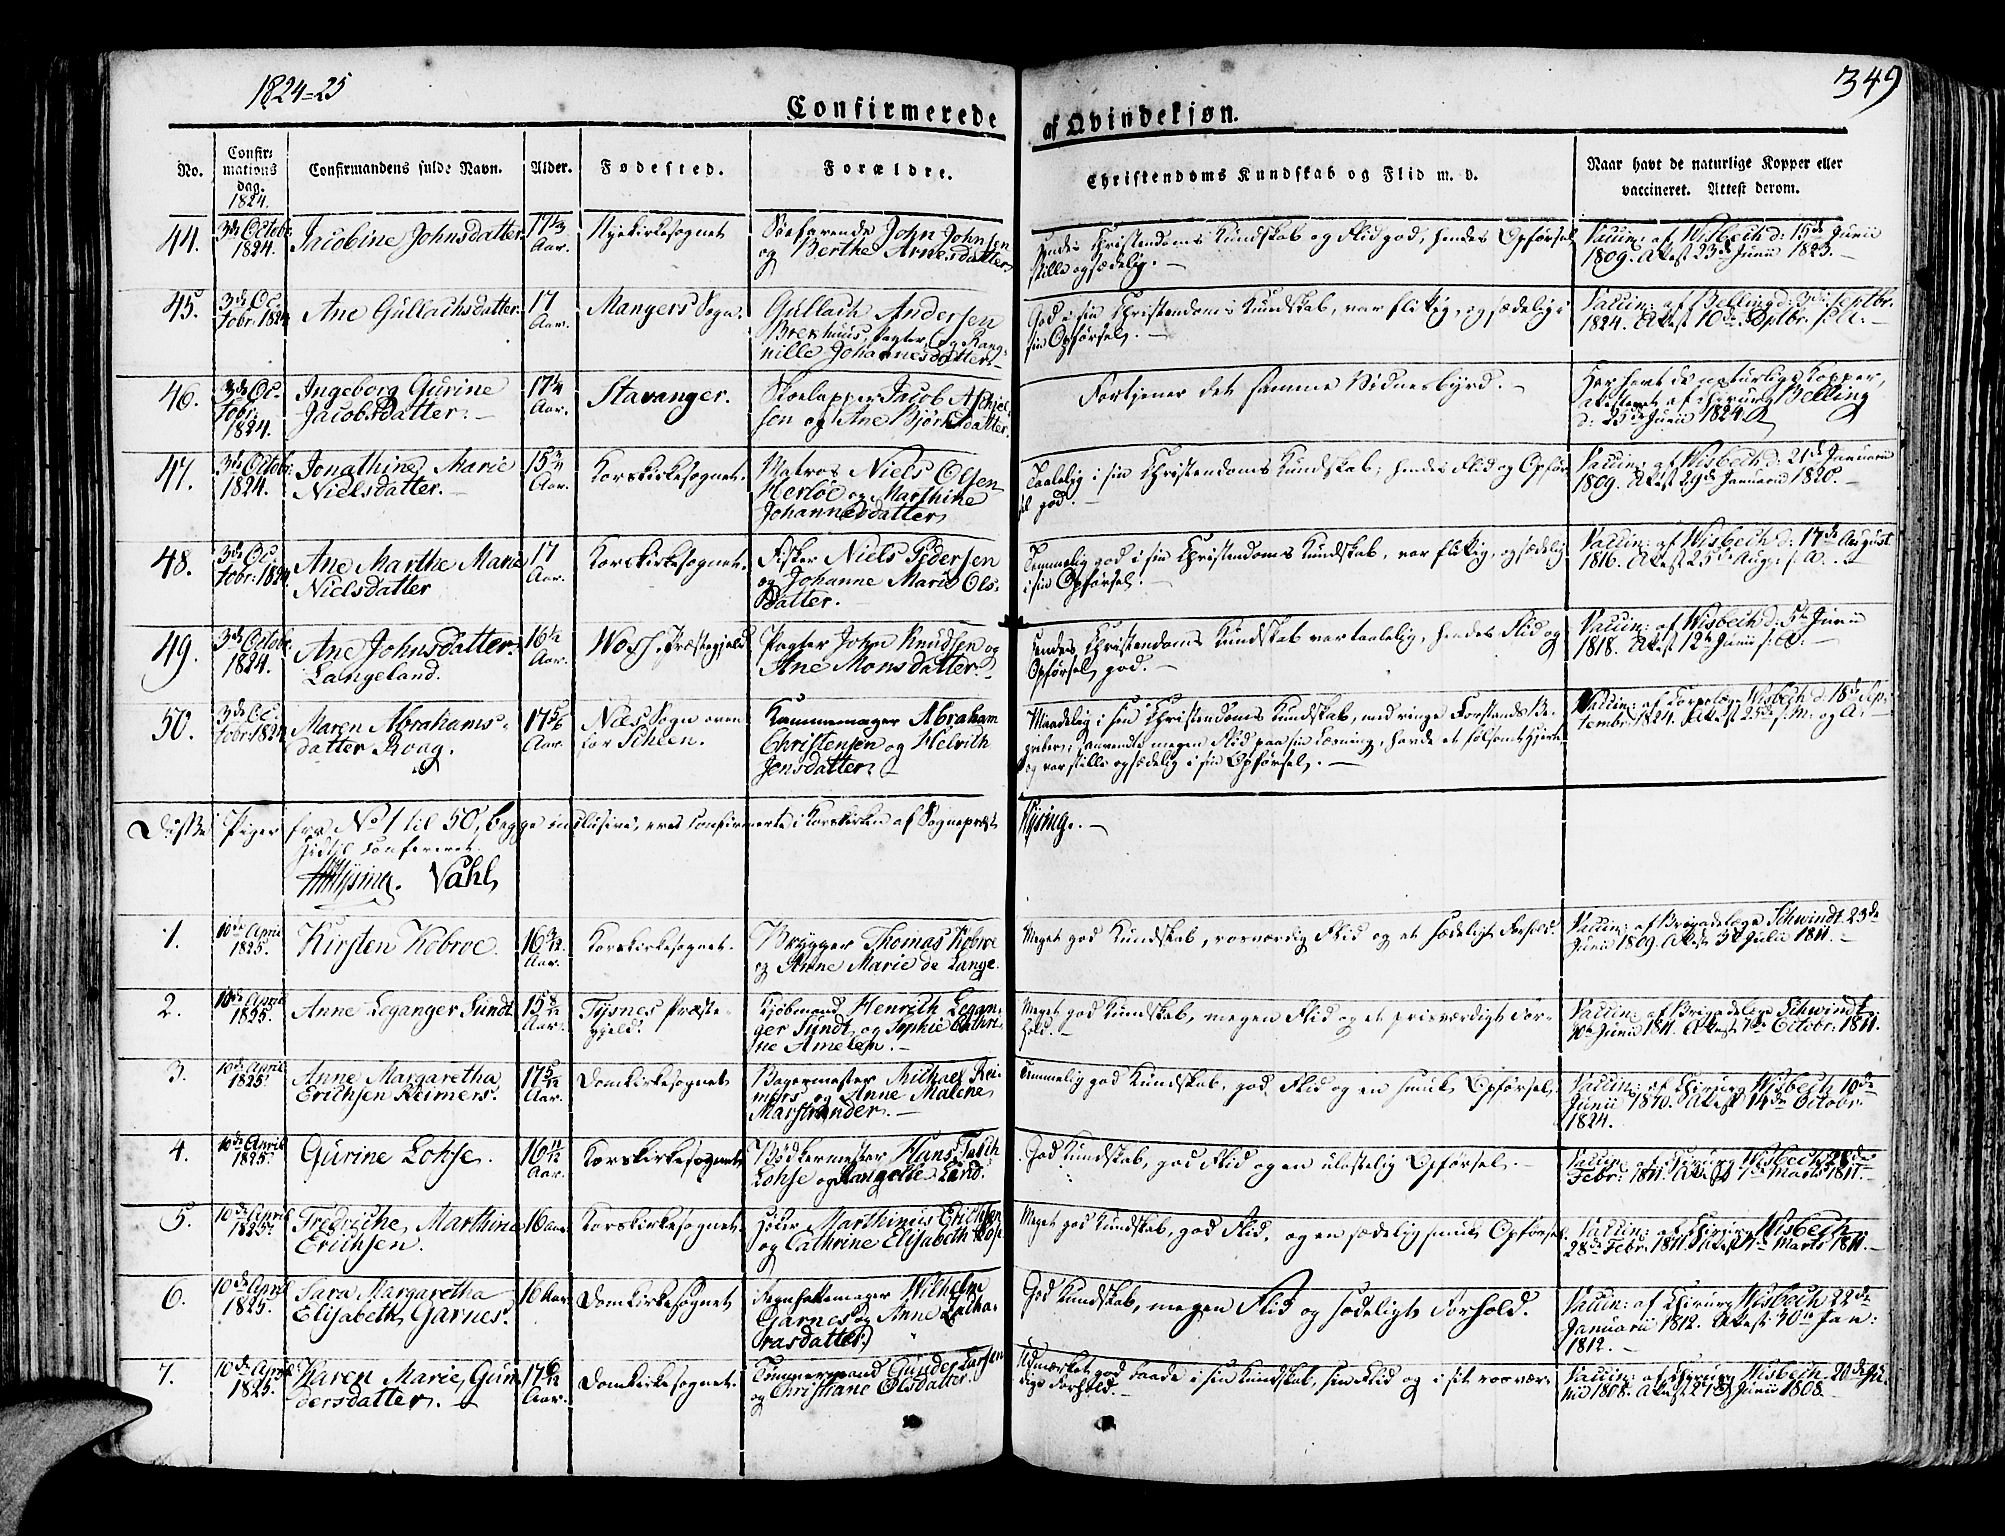 1824=25
349
Confirmerede af Qvindekjøn.
No.
Confir-
mations
dag.
1824.
Confirmandens fulde Navn.
Alder.
Fødested.
Forældre.
Christendoms Kundskab og Flid m. v.
Naar havt de naturlige Kopper eller
vaccineret. Attest derom.
44.
3de Octobr
1824.
Jacobine Johnsdatter.
17 1/3
Aar.
Nyekirkesognet
Søefarende John Johnsen
og Berthe Arnesdatter
Hendes Christendoms Kundskab og Flid god, hendes Opførsel
stille og sædelig. —
Vaccin: af Wisbech d: 15de Junii
1809. Attest 23de Junii 1823. —
45.
3de Oc-
tobr: 1824
Ane Gullachsdatter.
17
Aar.
Mangers Sogn.
Gullach Andersen
Brekhuus, Pagter, og Rang-
nille Johannesdatter. —
God i sin Christendoms Kundskab, var flittig, og sædelig i
sin Opførsel. —
Vaccin: af Belling d: 3de Septbr.
1824. Attest 10de Septbr. s. A. —
46.
3de Oc-
tobr.
1824.
Ingeborg Gurine
Jacobsdatter. —
17 1/4
Aar.
Stavanger.
Skoelapper Jacob
sen og Ane Bjørnsdatter.
Fortjener det samme Vidnesbyrd. —
Har havt de naturlige Kopper,
attesteret af Chirurg Belling
d: 25de Junii 1824.
47.
3de Octobr:
1824.
Jonathine Marie
Nielsdatter. —
15
Aar.
Korskirkesognet.
Matros Niels Olsen
Herløe og Marthine
Johannesdatter
Taalelig i sin Christendoms Kundskab, hendes Flid og Opfør-
sel god. —
Vaccin: af Wisbech d: 21de Januarii
1809. Attest 29de Januarii 1820. —
48.
3de Oc-
tobr: 1824
Ane Marthe Marie
Nielsdatter
17
Aar.
Korskirkesognet.
Fisker Niels Pedersen
og Johanne Marie Ols-
datter. —
Temmelig god i sin Christendoms Kundskab, var flittig, og sædelig
i sin Opførsel. —
Vaccin: af Wisbech d: 17de August
1816. Attest 25de Aug: s. A. —
49.
3de Octobr
1824.
Ane Johnsdatter
Langeland.
16 1/2
Aar.
Woss Præstegjeld
Pagter John Knudsen og
Ane Monsdatter. —
Hendes Christendoms Kundskab var taalelig, hendes Flid og
Opførsel god. —
Vaccin: af Wisbech d. 5te Junii
1818. Attest 12te Junii s. A. —
50.
3de Oc-
tobr: 1824
Maren Abrahams-
datter Roag.
17 5/6
Aar.
Næs Sogn oven
for Scheen.
Kammemager Abraham
Christensen og Helvith
Jensdatter. —
Maadelig i sin Christendoms Kundskab, med ringe Forstands Be-
greber; anvendte megen Flid paa sin Læsning, havde et følsomt Hjerte
og var stille og sædelig i sin Opførsel. —
Vaccin: af Wisbech d. 18de Sep-
tembr: 1824. Attest 25de s. M. og A. —
Disse Piger fra No 1 til 50, begge inclusive, ere Confirmerte i Korskirken af Sognepræst Hysing. —
Hysing. Vahl
1.
10de April
1825.
Kirsten Kobroe.
16 3/12
Aar.
Korskirkesognet.
Brygger Thomas Kobroe
og Anne Marie de Lange.
Meget god Kundskab, rosværdig Flid og et sædeligt Forhold.
Vaccin: af Brigadelæge Schwindt 23de
Junii 1809. Attest 5te Julii 1811. —
2.
10de April
1825.
Anne Leganger Sundt
15 8/12
Aar.
Tysnes Præste-
gjeld.
Kjøbmand Henrich Legan-
ger Sundt og Sophie Cathri-
ne Ameln. —
Meget god Kundskab, megen Flid og et priisværdigt For-
hold. —
Vaccin: af Brigadelæge Schwindt
10de Junii 1811. Attest 7de Octobr: 1811.
3.
10de April
1825.
Anne Margaretha
Erichsen Reimers.
17 5/12
Aar.
Domkirkesognet
Bagermester Michael Rei-
mers og Anne Malene
Marstrander. —
Temmelig god Kundskab, god Flid og en smuk Opførsel.
Vaccin: af Chirurg Wisbech 10de
Junii 1810. Attest 14de Octobr:
1824.
4.
10de April
1825.
Gurine Lohse.
16 11/12
Aar.
Korskirkesognet
Bødkermester Hans
Lohse og Lund.
God Kundskab, god Flid og en ulastelig Opførsel. —
Vaccin: af Chirurg Wisbech 28de
Febr: 1811. Attest 1te Marts 1811. —
5.
10de April
1825.
Fredriche, Marthine
Erichsen.
16 Aar.
Korskirkesognet.
Høker Marthinus Erichsen
og Cathrine Elisabeth
Meget god Kundskab, god Flid, og en sædelig smuk Opførsel.
Vaccin: af Chirurg Wisbech
28de Febr: 1811. Attest 1te Marts 1811. —
6.
10de April
1825.
Sara Margaretha
Elisabeth Garnes.
16 Aar.
Domkirkesognet
Wilhelm
Garnes og Anne Zacha-
riasdatter.
God Kundskab, megen Flid og sædeligt Forhold.
Vaccin: af Chirurg Wisbech 22de
Januarii 1812. Attest 30te Jan:
1812. —
7.
10de April
1825.
Karen Marie, Gun-
dersdatter. —
17 6/12
Aar.
Domkirkesognet.
Tømmermand Gunder Larsen
og Christiane Olsdatter.
Udmærket god baade i sin Kundskab, sin Flid og i sit rosvær-
dige Forhold. —
Vaccin: af Chirurg Wisbech 20de Ju-
nii 1808. Attest 27de Junii 1808. —